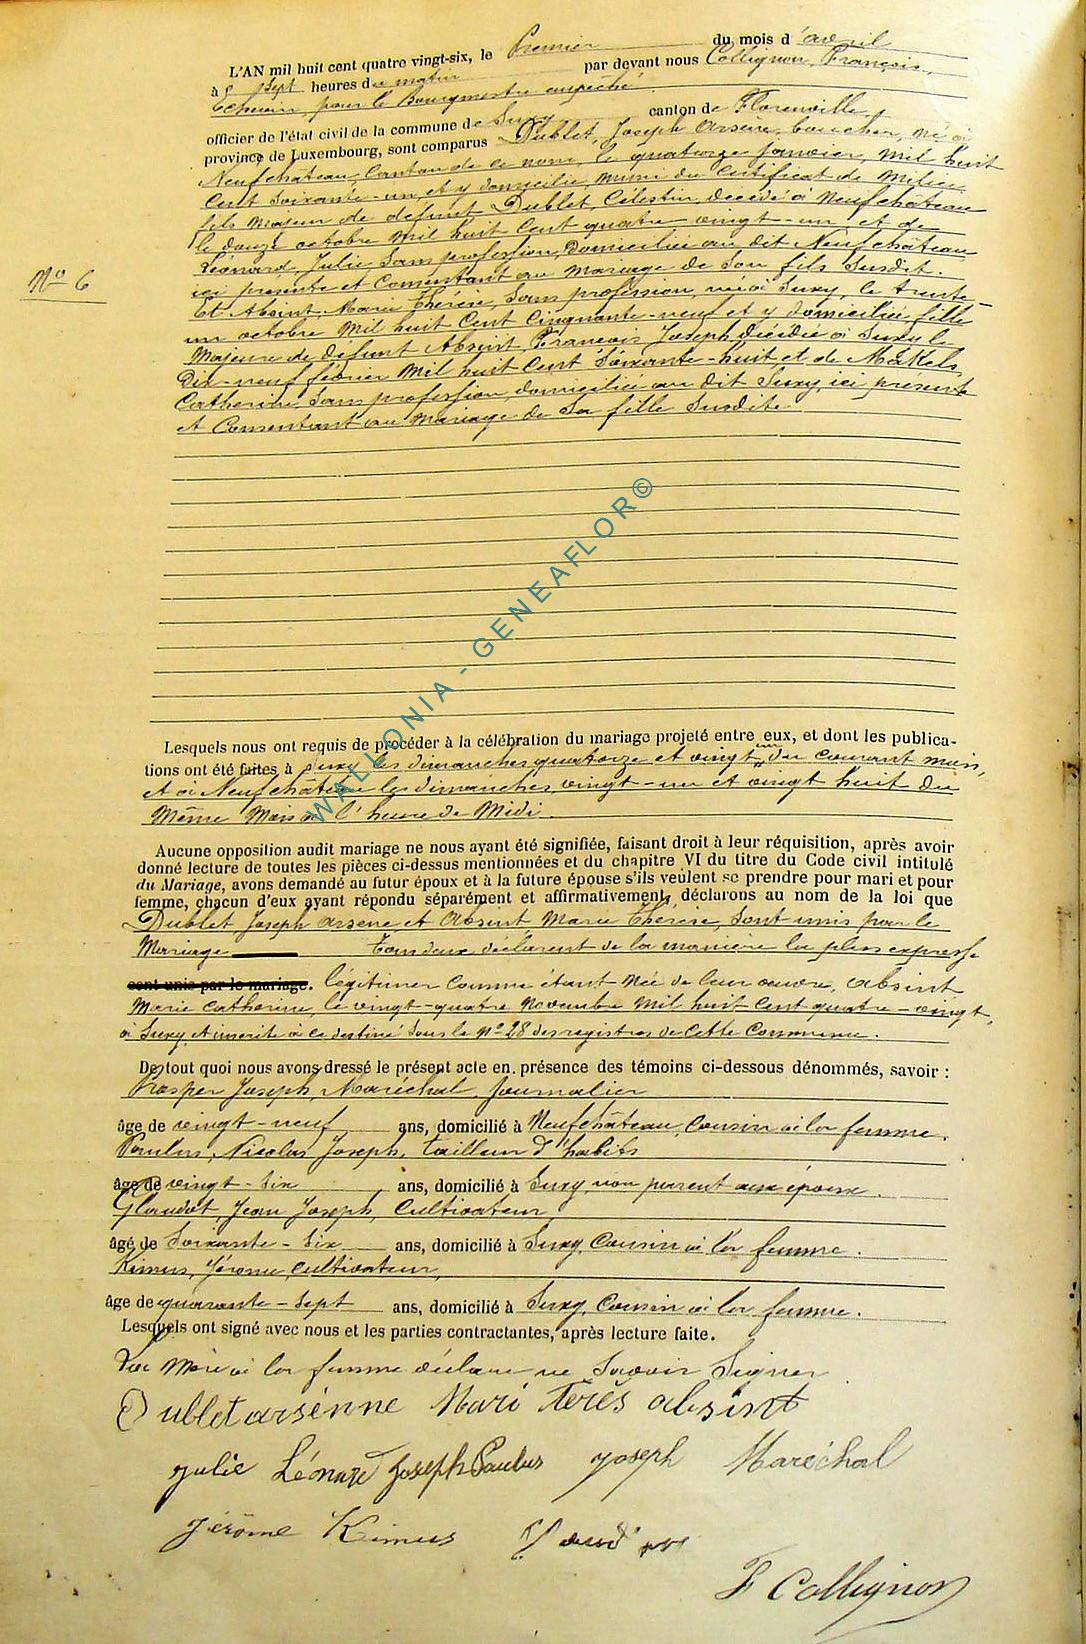 L'AN mil huit cent quatre vingt-six, le Premier du mois d'avril
à sept heures du matin par devant nous Collignon, François,
Echevin, pour le Bourgmestre empêché
officier de l'état civil de la commune de Suxy canton de Florenville,
province de Luxembourg, sont comparus Dublet, Joseph Arsène, boucher, né à
Neufchâteau, Canton de ce nom, le quatorze Janvier, Mil huit
Cent Soixante-un, et y domicilié, muni du Certificat de Milice
fils majeur de défunt Dublet, Célestin, décédé à Neufchâteau
le douze octobre Mil huit Cent quatre-vingt-un et de
Léonard, Julie Sans profession, domiciliée au dit Neufchâteau
ici présente et Consentant au Mariage de Son fils Susdit.
Et Absint, Marie Thérèse, Sans profession, née à Suxy, le trente-
un octobre Mil huit Cent Cinquante-neuf et y domiciliée, fille
Majeure de défunt Absint, François Joseph décédé à Suxy le
Dix-neuf février Mil huit Cent Soixante-huit et de Makels,
Catherine, Sans profession, domiciliée au dit Suxy, ici présente
et Consentant au Mariage de Sa fille Susdite.
Nº 6
WALLONIA - GENEAFLOR©
Lesquels nous ont requis de procéder à la célébration du mariage projeté entre eux, et dont les publica-
tions ont été faites à Suxy les dimanches quatorze et vingt un du courant mois,
et à Neufchâteau les dimanches vingt-un et vingt huit du
Même Mois à l'heure de Midi.
Aucune opposition audit mariage ne nous ayant été signifiée, faisant droit à leur réquisition, après avoir
donné lecture de toutes les pièces ci-dessus mentionnées et du chapitre VI du titre du Code civil intitulé
du Mariage, avons demandé au futur époux et à la future épouse s'ils veulent se prendre pour mari et pour
femme, chacun d'eux ayant répondu séparément et affirmativement, déclarons au nom de la loi que
Dublet Joseph Arsène et Absint, Marie Thérèse, Sont unis par le
Mariage Tous deux déclarent de la manière la plus expresse
sont unis par le mariage. légitimer Comme étant Née de leur œuvre, Absint
Marie Catherine, le vingt-quatre Novembre Mil huit Cent quatre-vingt,
à Suxy et inscrite à ce destiné Sous le Nº 28 des registres de Cette Commune.
De tout quoi nous avons dressé le présent acte en présence des témoins ci-dessous dénommés, savoir :
Prosper Joseph, Maréchal, Journalier
âge de vingt-neuf ans, domicilié à Neufchâteau, Cousin à la femme.
Paulus, Nicolas Joseph, tailleur d'habits
âge de vingt-six ans, domicilié à Suxy, non parent aux époux.
Glaudot, Jean Joseph, Cultivateur,
âgé de Soixante-Six ans, domicilié à Suxy, Cousin à la femme.
Kimus, Jérome, Cultivateur,
âge de quarante-Sept ans, domicilié à Suxy, Cousin à la femme.
Lesquels ont signé avec nous et les parties contractantes, après lecture faite.
La Mère à la femme déclare ne Savoir Signer
Dublet arsènne Mari Térès absint
julie Léonard Joseph Paulus joseph Maréchal
jérôme Kimus
F Collignon